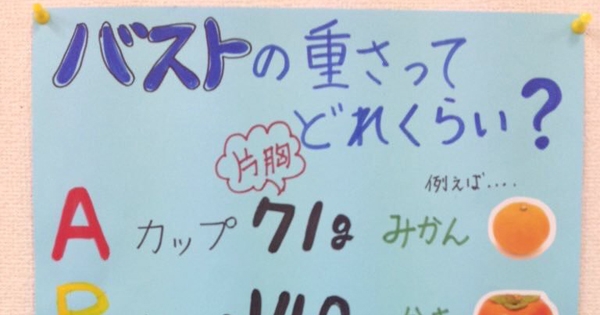 バストの重さって
どれくらい?
片胸
例えば....
Aカップ 71g みかん
B